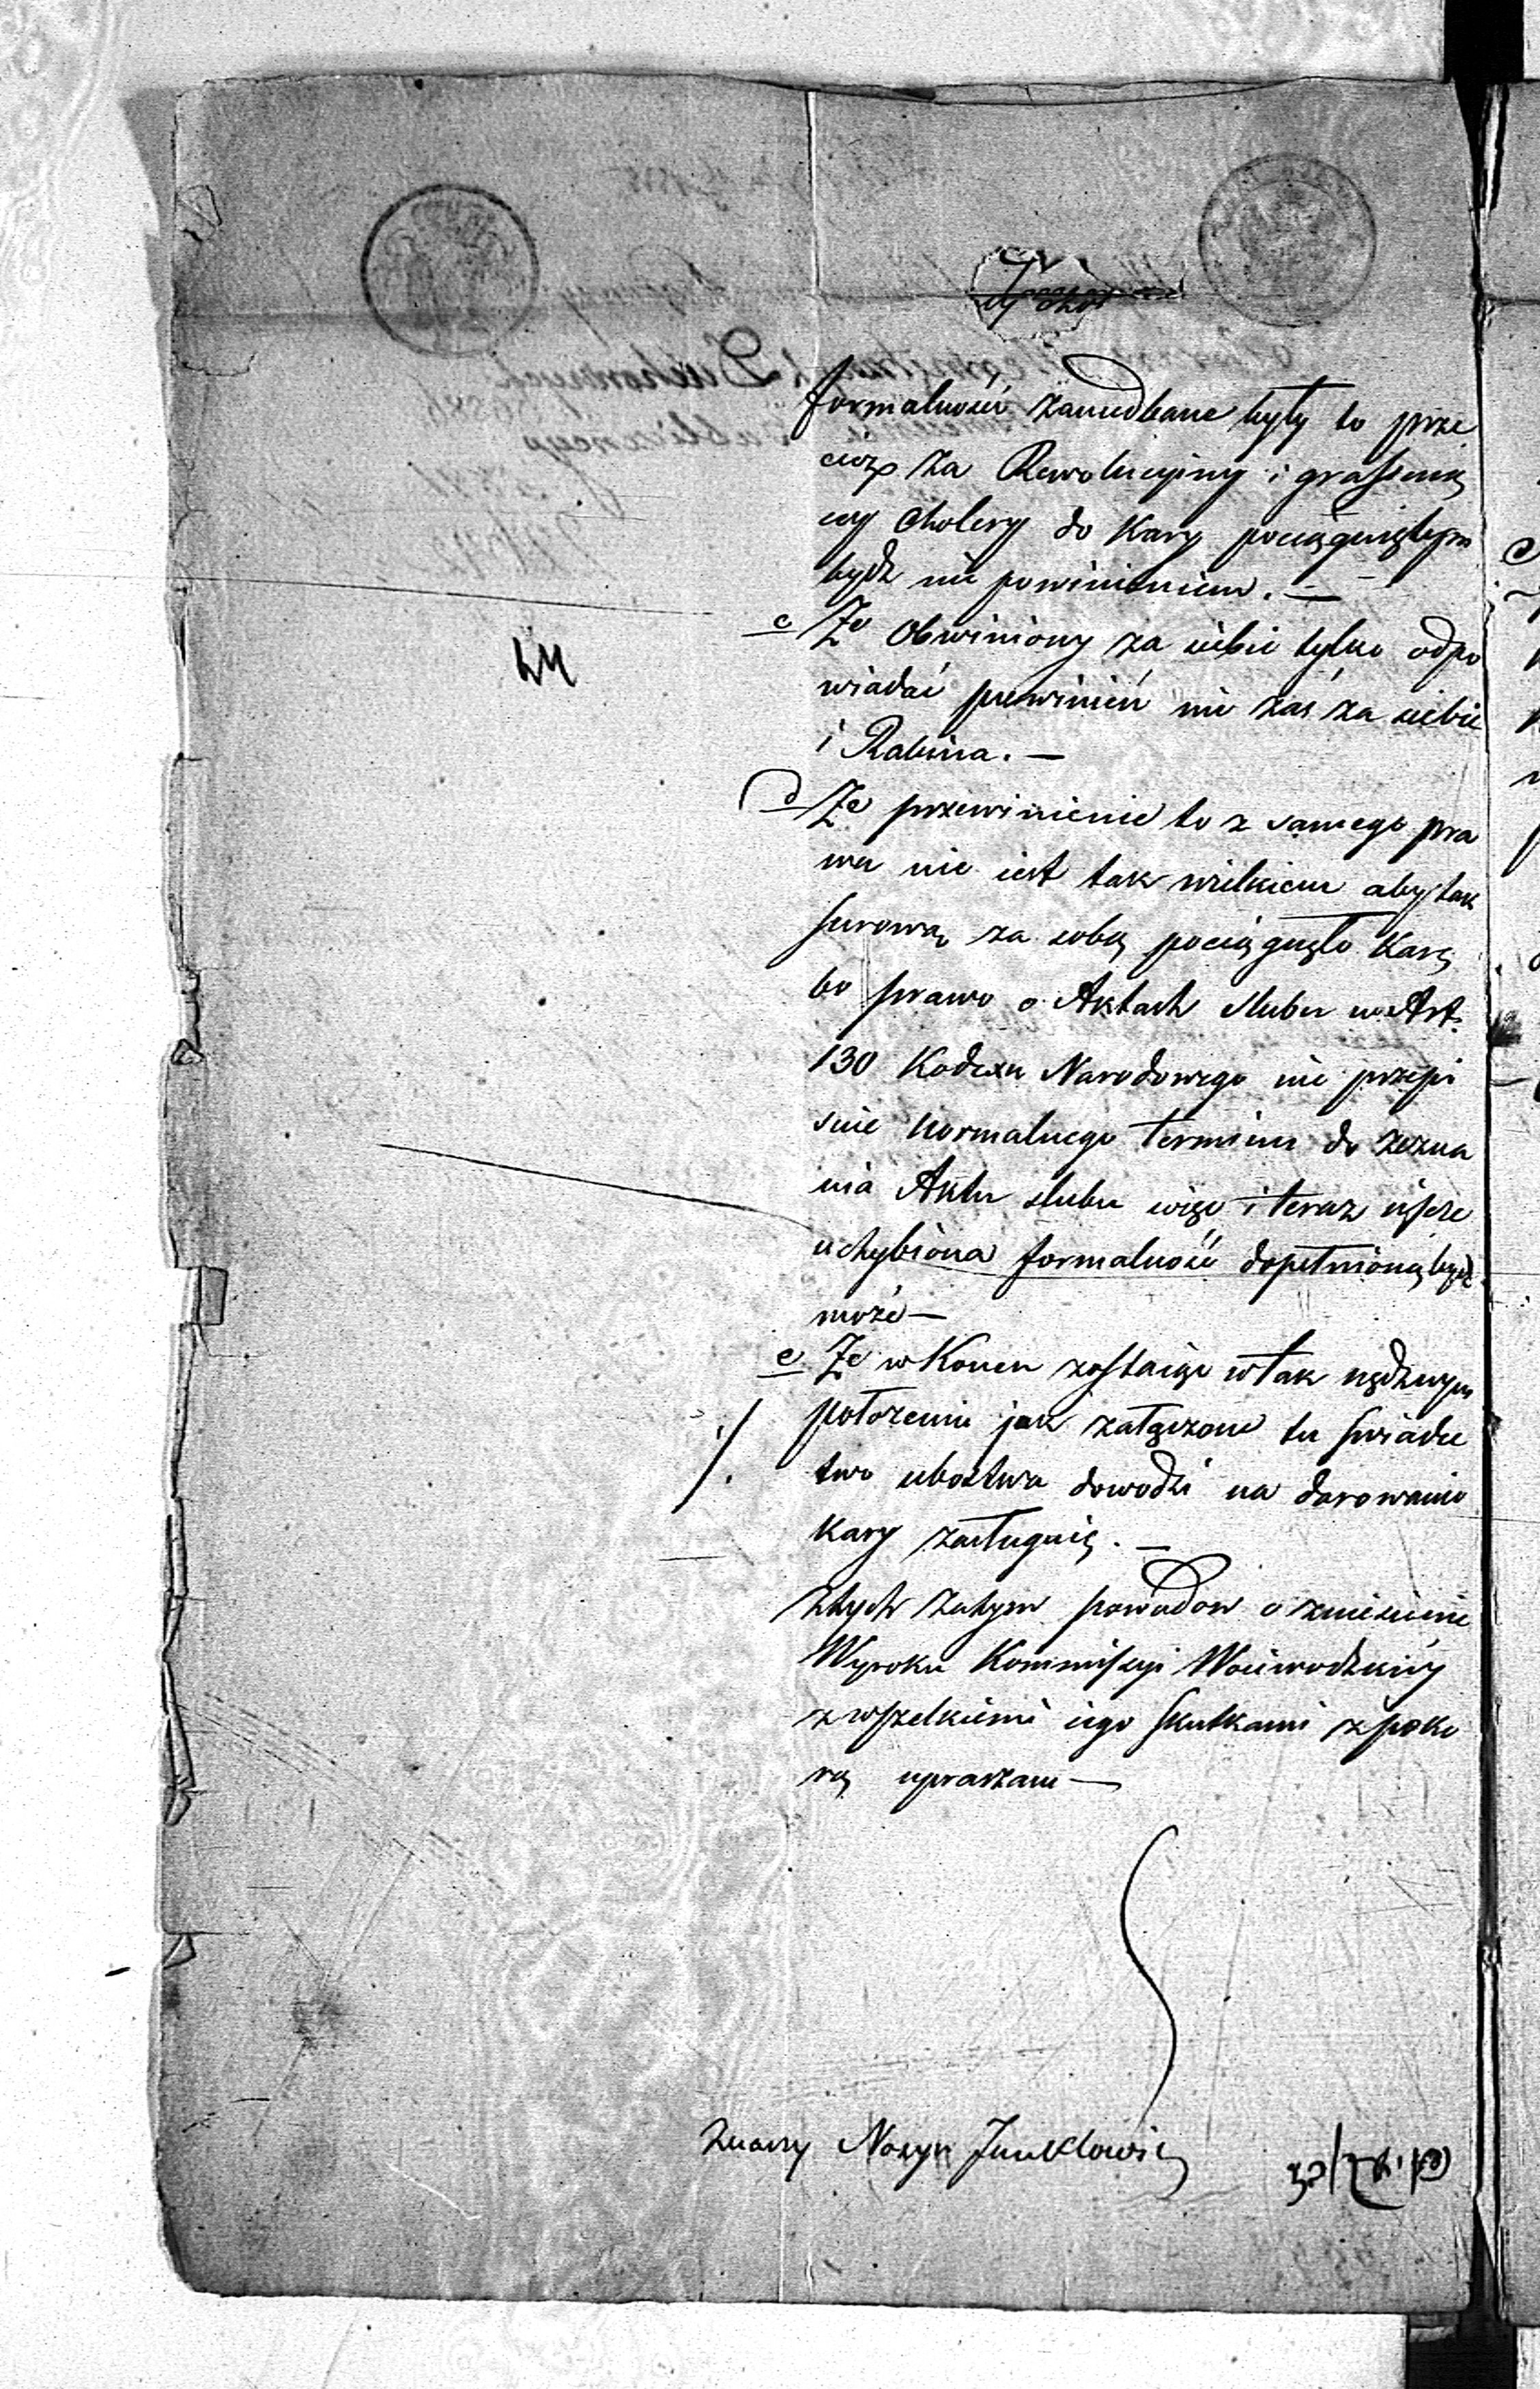 formalności zaniedbane były to prze
cięż za Rewolucyiny i grassuią
cy Cholery do Kary pociągniętym
bydź nie powinienem. —
c Że Obwiniony za siebie tylko odpo
wiadać powinień nie zaś za siebie
i Rabina. —
d Że przewinienie to z samego pra
wa nie iest tak wielkiem aby tak
surową za sobą pociągnęło Karę
bo prawo o Aktach slubu w Art.
130 Kodexu Narodowego nie przepi
suie normalnego terminu do zezna
nia Aktu slubu więc i teraz
uchybiona formalność dopełnioną bydź
może —
e Że w Koncu zostaiąc w tak nędznym
położeniu jak załączone tu swiadec
two ubostwa dowodzi na darowanie
Kary zasługuię. —
Ztych zatym powodow o zniesienie
Wyroku Kommissyi Woiewodzkiey
z wszelkiemi iego skutkami z poko
rą upraszam —
Znaczy Nosyn Janklowicz